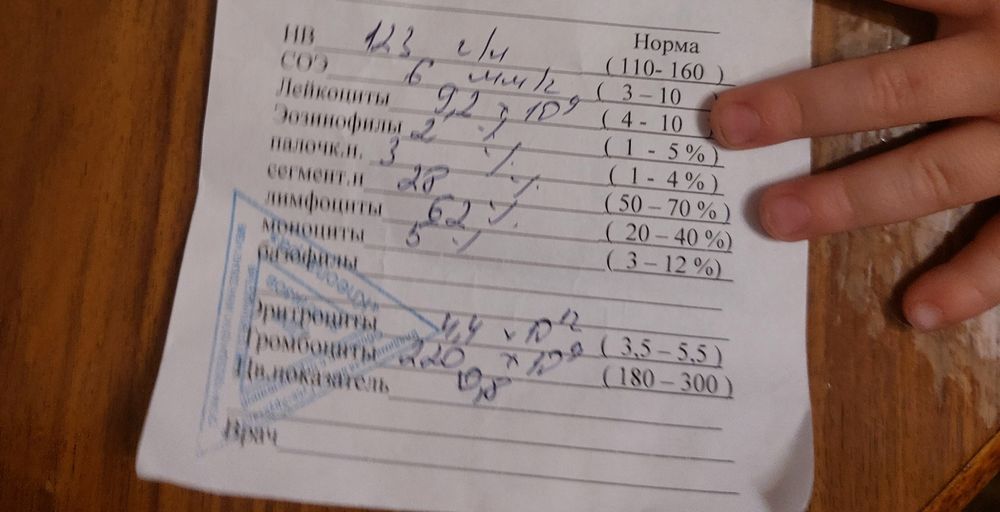 Норма
НВ 123 г/л (110-160)
СОЭ 6 мм/ч (3 – 10
Лейкоциты 9,2 х 10⁹ (4 - 10
Эозинофилы 2 % (1 - 5 %)
палочк.н. 3 % (1 - 4 %)
сегмент.н 28 % (50 – 70 %)
лимфоциты 62 % (20 – 40 %)
моноциты 5 % (3 – 12 %)
базофилы
Эритроциты 4,4 х 10¹² (3,5 – 5,5)
Тромбоциты 220 х 10⁹ (180 – 300)
Цв.показатель 0,8
Врач